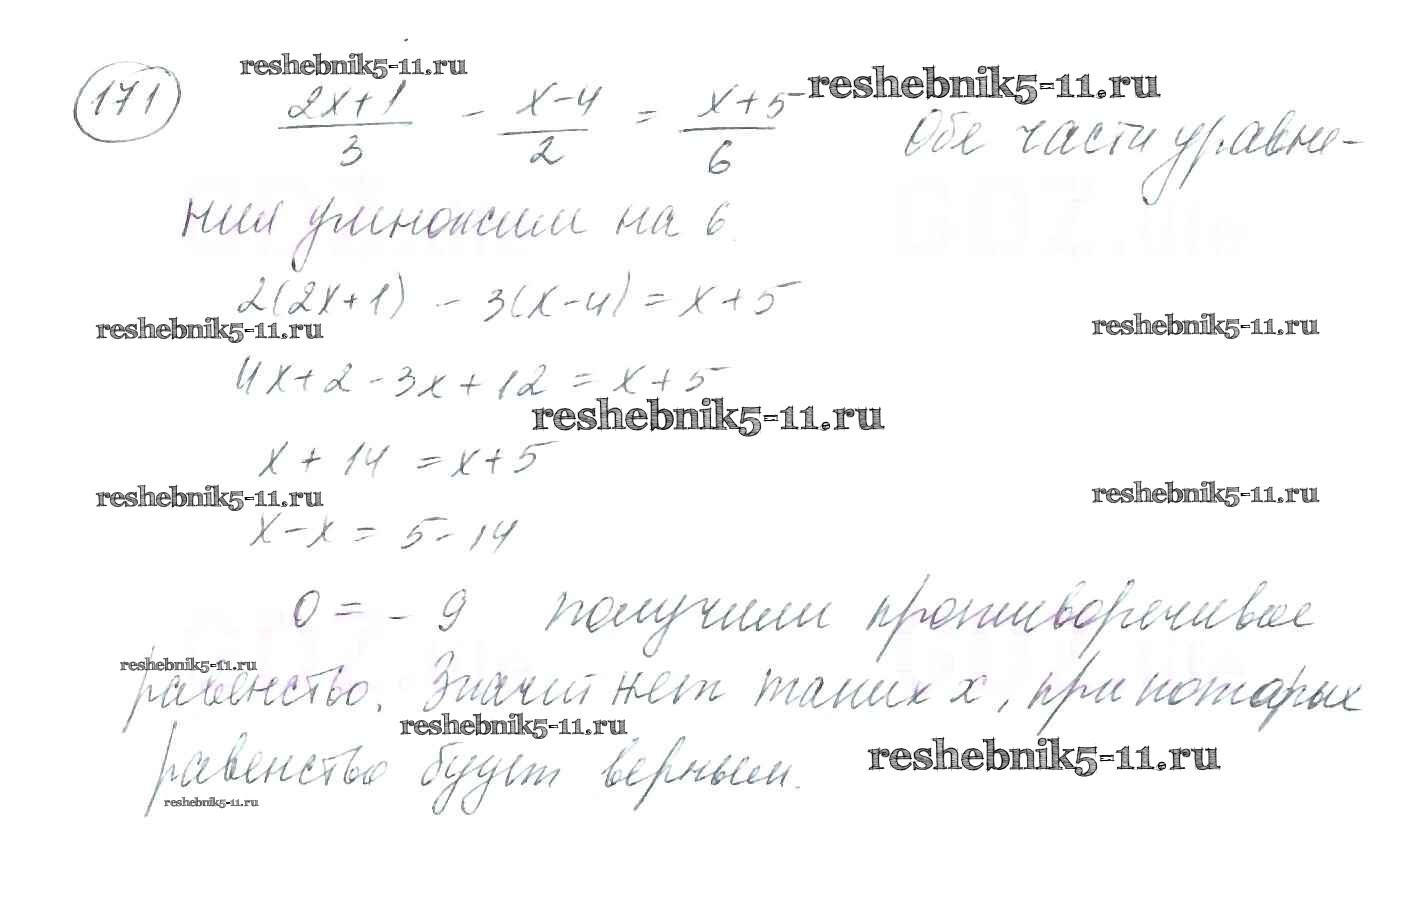 reshebnik5-11.ru
reshebnik5-11.ru
171 (2x+1)/3 - (x-4)/2 = (x+5)/6 Обе части уравне-
ния умножим на 6.
2(2x+1) - 3(x-4) = x+5
reshebnik5-11.ru reshebnik5-11.ru
4x+2-3x+12 = x+5
reshebnik5-11.ru
x + 14 = x+5
reshebnik5-11.ru reshebnik5-11.ru
x-x = 5-14
0 = -9 получили противоречивое
reshebnik5-11.ru
равенство. Значит нет таких x, при которых
reshebnik5-11.ru
reshebnik5-11.ru
равенство будет верным.
reshebnik5-11.ru